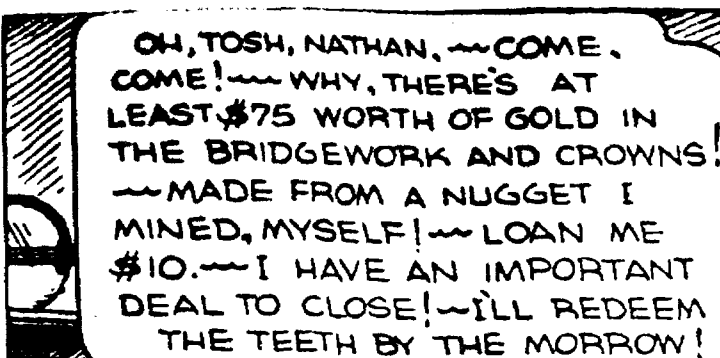 OH, TOSH, NATHAN. ~~ COME,
COME! ~~ WHY, THERE'S AT
LEAST $75 WORTH OF GOLD IN
THE BRIDGEWORK AND CROWNS!
~~ MADE FROM A NUGGET I
MINED, MYSELF! ~~ LOAN ME
$10. ~~ I HAVE AN IMPORTANT
DEAL TO CLOSE! ~ I'LL REDEEM
THE TEETH BY THE MORROW!